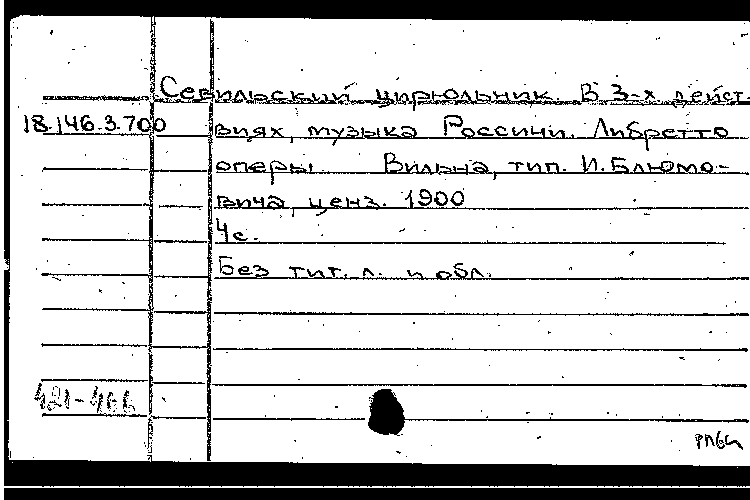 Севильский цирюльник. В 3-х дейст-
18.146.3.700 виях, музыка Россини. Либретто
оперы. Вильна, тип. И. Блюмо-
вича, ценз. 1900
4с.
Без тит. л. и обл.
421-466